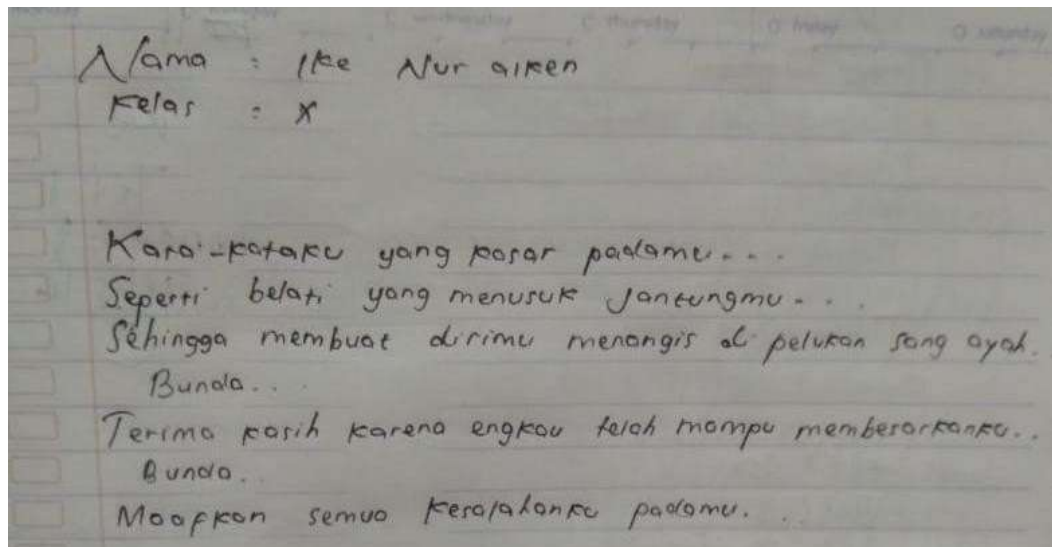 Nama : Ike Nur aiken
Kelas : X
Kata-kataku yang kasar padamu...
Seperti belati yang menusuk Jantungmu...
Sehingga membuat dirimu menangis di pelukan sang ayah.
Bunda...
Terima kasih karena engkau telah mampu membesarkanku..
Bunda..
Maafkan semua kesalahanku padamu...